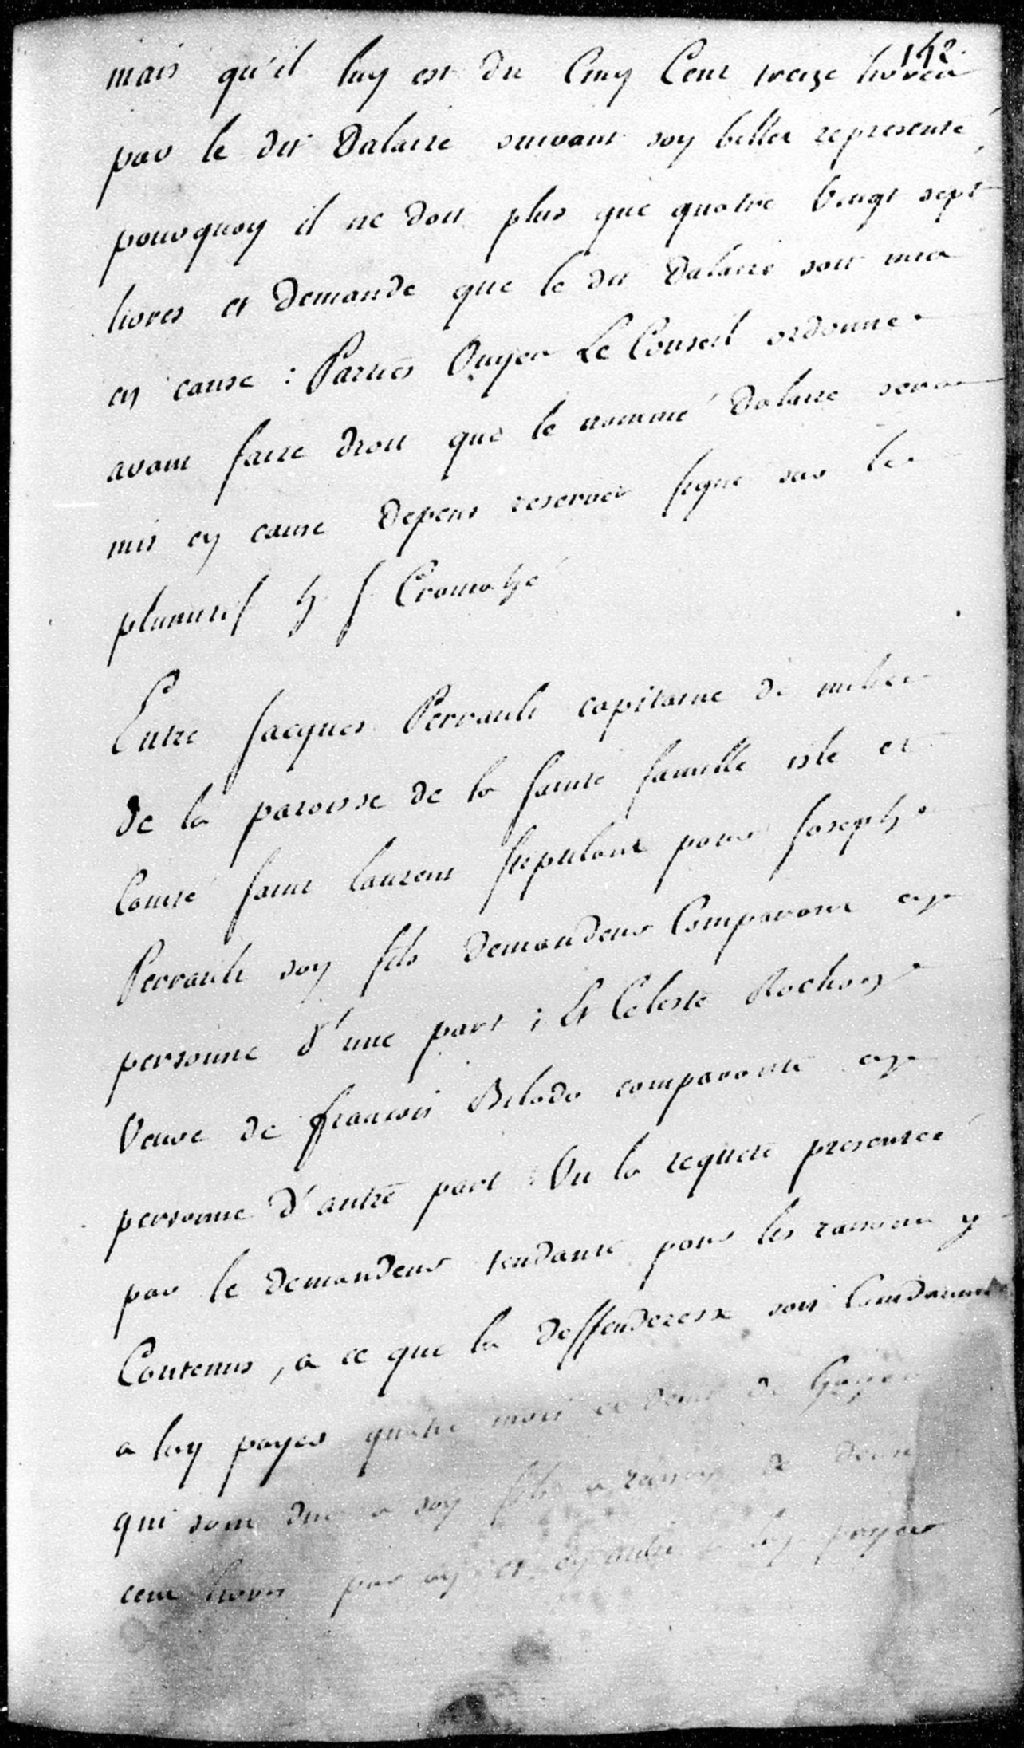 142.
mais qu'il luy est du Cinq Cent treize livres
par le dit Dalaire suivant soy billet representé,
pourquoy il ne doit plus que quatre Vingt sept
livres et demande que le dit Dalaire soit mis
en cause : Parties Ouyes Le Conseil ordonne
avant faire droit que le nommé Dalaire sera
mis en cause depens reserves signé sur le
plumitif H. J Cramahé
Entre Jacques Perrault capitaine de milice
de la paroisse de la sainte famille isle et
Comté saint laurent stipulant pour Joseph
Perrault soy fils demandeur Comparant en
personne d'une part ; Et Celeste Rochon
Veuve de francois Bilodo comparante en
personne d'autre part : Vu la requete presentée
par le demandeur tendante pour les raisons y
Contenus, a ce que la deffenderesse soit Condamnée
a luy payer quatre mois et demi de Gages
qui sont dus a soy fils a raison de deux
cent livres par an et en outre a luy payer